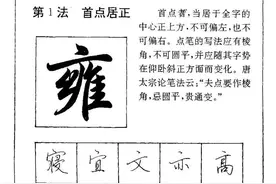 第1法 首点居正
首点者，当居于全字的
中心正上方，不可偏左，也不
可偏右。点笔的写法应有棱
角，不可圆平，并应随其字势
在仰卧斜正方面而变化。唐
太宗论笔法云：“夫点要作棱
角，忌圆平，贵通变。”
雍
寝 宜 文 亦 高